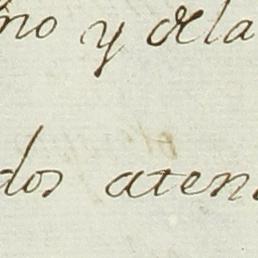 no y de la
dos aten